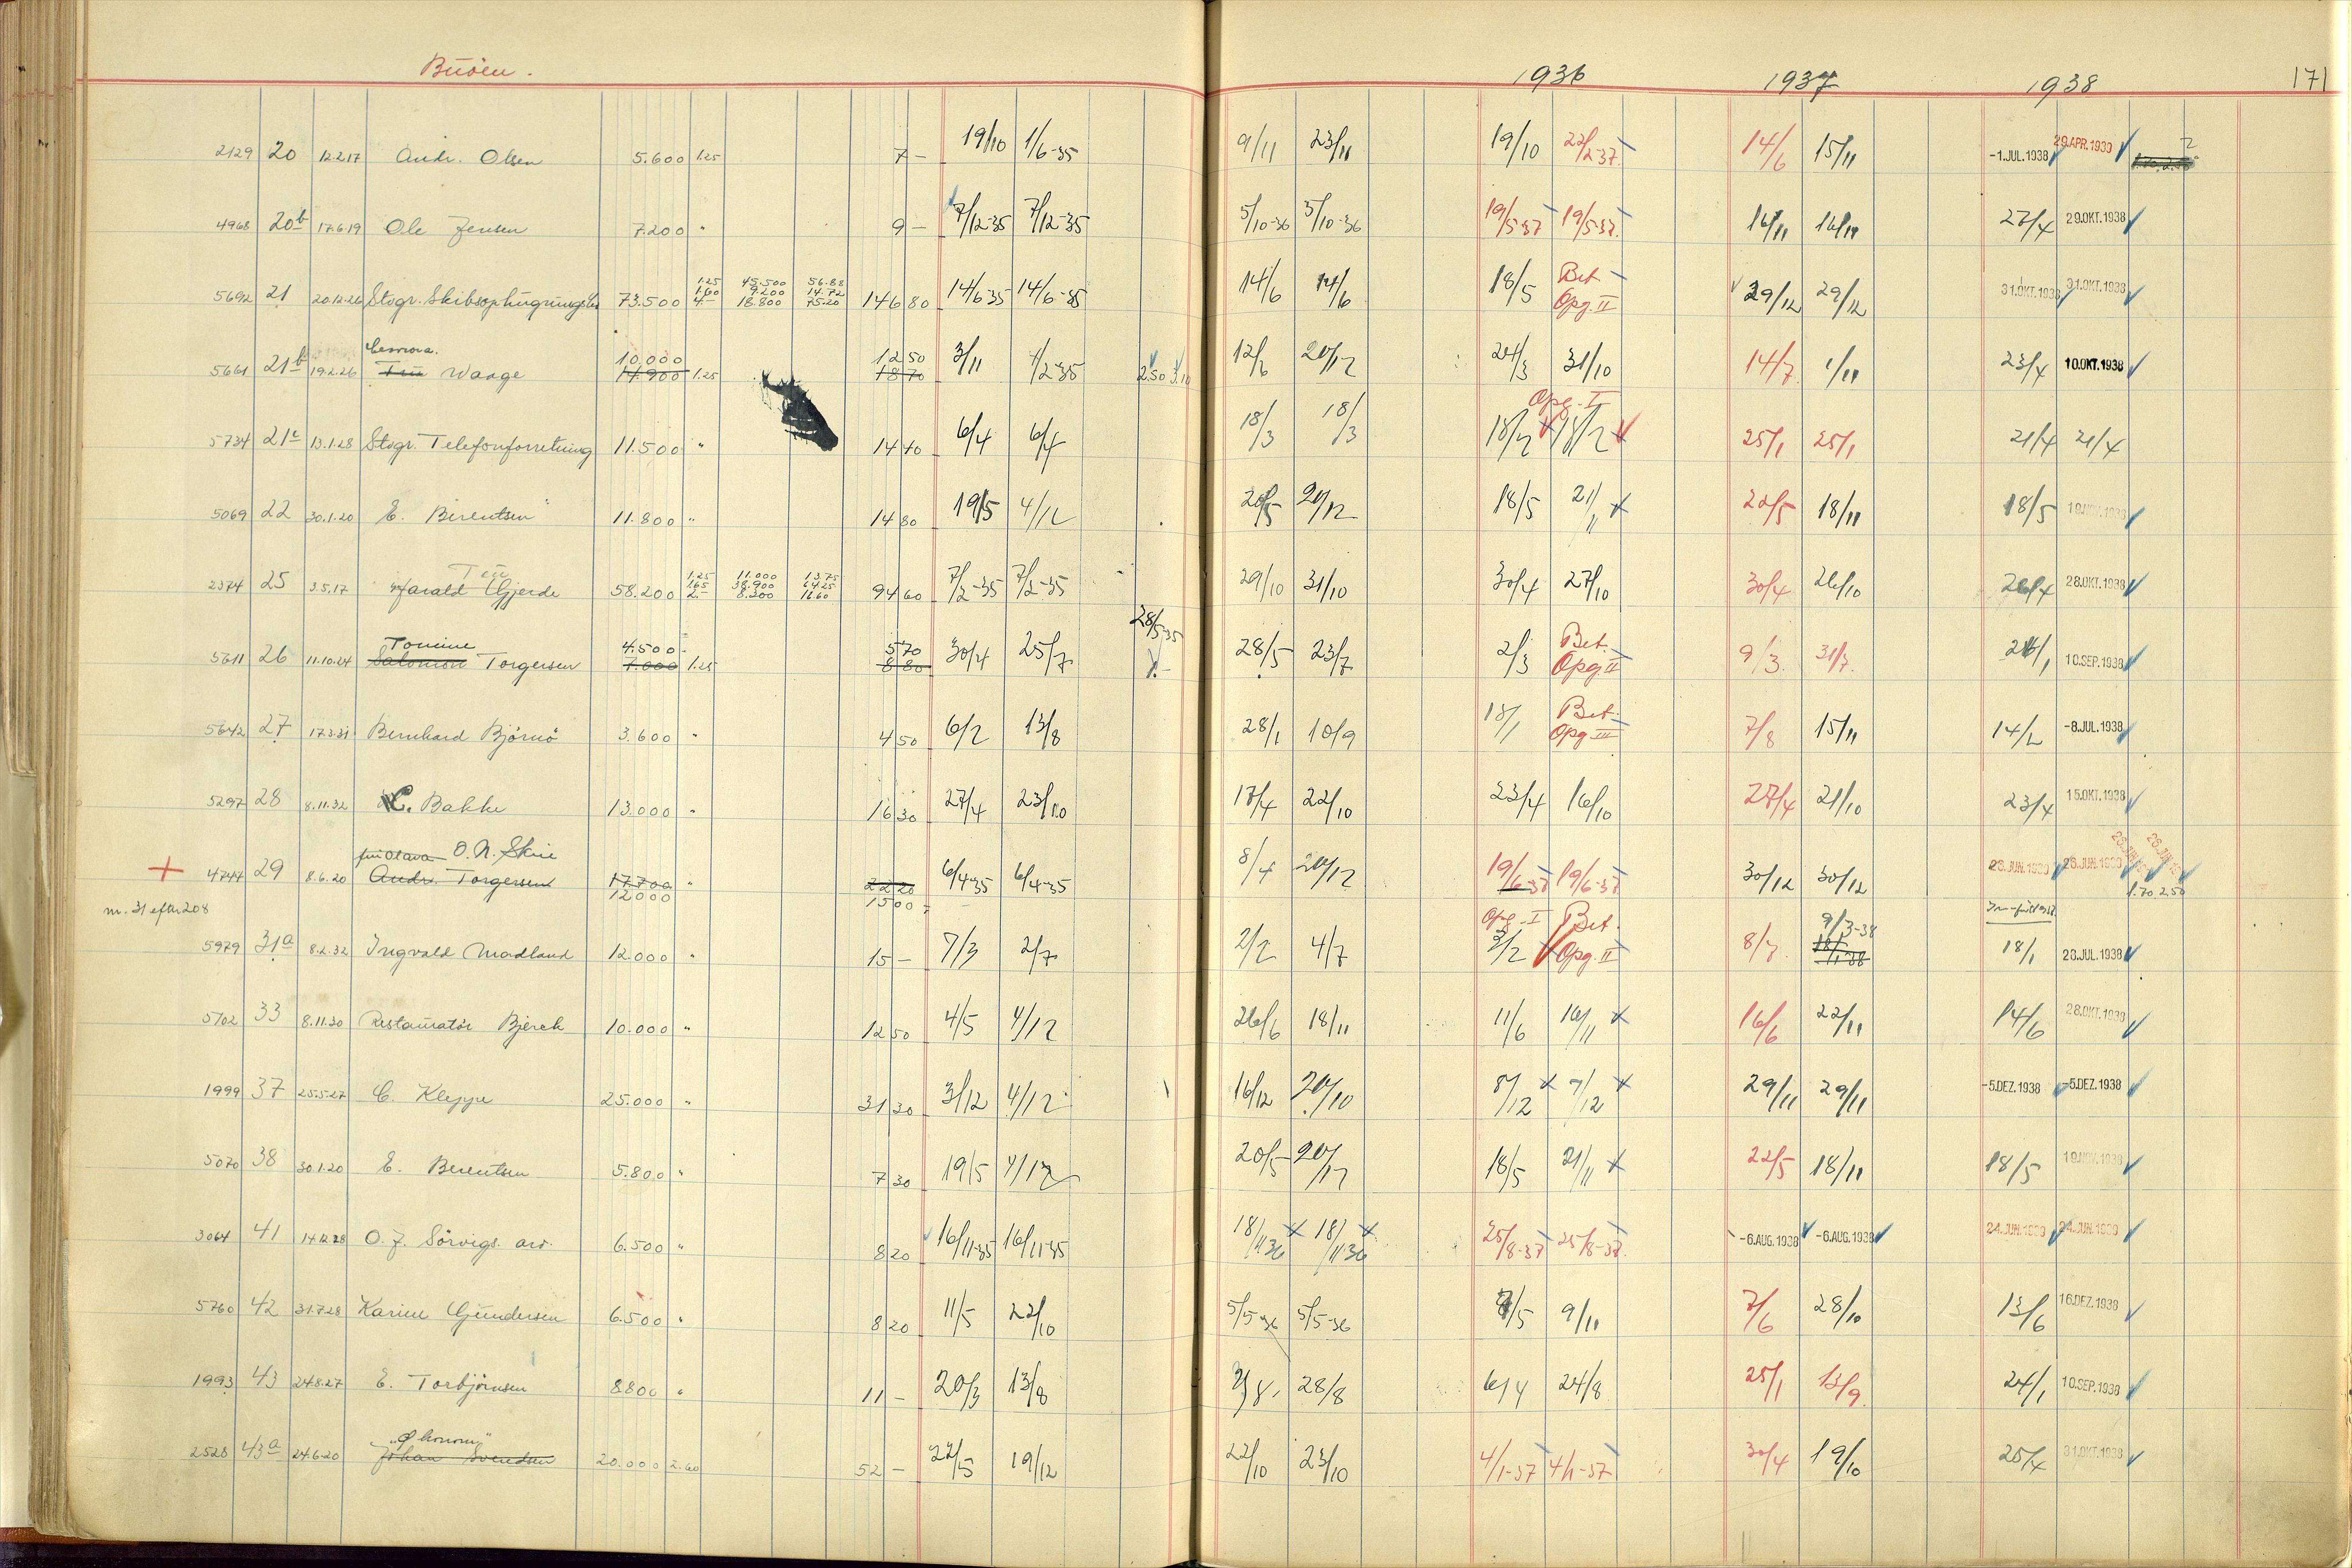 Buöen. 1936 1937 1938 171
2129 20 12.2.17 Andr. Olsen 5.600 1.25 7 — 19/10 1/6-35 9/11 23/11 19/10 22/2-37. 14/6 15/11 -1.JUL.1938 29.APR.1939 2
4968 20b 17.6.19 Ole Jensen 7.200 " 9 — 7/12-35 7/12-35 5/10-36 5/10-36 19/5-37 19/5-37. 16/11 16/11 27/4 29.OKT.1938
1.25 45.500 56.88
5692 21 20.12.26 Stvgr. Skibsophugnings 73.500 1.60 9.200 14.72 146 80 14/6-35 14/6-35 14/6 14/6 18/5 Bet. Opg. II 29/12 29/12 31.OKT.1938 31.OKT.1938
4.— 18.800 75.20
10.000 12 50
5661 21b 19.2.26 Waage 14.900 1.25 18 70 3/11 4/2-35 2.50 3.10 12/6 20/12 24/3 31/10 14/7 1/11 23/4 10.OKT.1938
Opg. I
5734 21c 13.1.28 Stvgr. Telefonforretning 11.500 " 14 40 6/4 6/4 18/3 18/3 18/2 18/2 25/1 25/1 21/4 21/4
5069 22 30.1.20 E. Berentsen 11.800 " 14 80 19/5 4/12 20/5 20/12 18/5 21/11 22/5 18/11 18/5 19.NOV.1938
1.25 11.000 13.75
2374 25 3.5.17 Harald Gjerde 58.200 1.65 38.900 64.25 94 60 7/2-35 7/2-35 29/10 31/10 30/4 27/10 30/4 26/10 26/4 28.OKT.1938
2.— 8.300 16.60
Tomine 4.500 5 70 28/5-35
5611 26 11.10.24 Salomon Torgersen 7.000 1.25 8 80 30/4 25/7 28/5 23/7 2/3 Bet. Opg. II 9/3. 31/7. 24/1 10.SEP.1938
5642 27 17.3.31 Bernhard Björnö 3.600 " 4 50 6/2 13/8 28/1 10/9 18/1 Bet. Opg. III 7/8 15/11 14/2 -8.JUL.1938
5297 28 8.11.32 C. Bakke 13.000 " 16 30 27/4 23/10 17/4 22/10 23/4 16/10 27/4 21/10 23/4 15.OKT.1938
fru Olava O. N. Skue
4744 29 8.6.20 Andr. Torgersen 17.700 " 22 20 6/4-35 6/4-35 8/4 20/12 19/6-37 19/6-37 30/12 30/12 26.JUN.1939 26.JUN.1939
12000 15 00 1.70 2.50
nr. 31 efter 208
5979 31a 8.2.32 Ingvald Madland 12.000 " 15 — 7/3 2/7 2/2 4/7 Opg. I 3/2 Bet. Opg. II 8/7 9/3-38 18/1 23.JUL.1938
5702 33 8.11.30 Restauratör Bjerck 10.000 " 12 50 4/5 4/12 26/6 18/11 11/6 16/11 16/6 22/11 14/6 28.OKT.1938
1999 37 25.5.27 C. Kleppe 25.000 " 31 30 3/12 4/12 16/12 20/10 8/12 7/12 29/11 29/11 -5.DEZ.1938 -5.DEZ.1938
5070 38 30.1.20 E. Berentsen 5.800 " 7 30 19/5 4/12 20/5 20/12 18/5 21/11 22/5 18/11 18/5 19.NOV.1938
3064 41 14.12.28 O. J. Sörvigs. arv. 6.500 " 8 20 16/11-35 16/11-35 18/11 36 18/11 36 25/8-37 25/8-37. -6.AUG.1938 -6.AUG.1938 24.JUN.1939 24.JUN.1939
5760 42 31.7.28 Karine Gundersen 6.500 " 8 20 11/5 22/10 5/5-36 5/5-36 7/5 9/11 7/6 28/10 13/6 16.DEZ.1938
1993 43 24.8.27 E. Torbjörnsen 8800 " 11 — 20/3 13/8 28/8 6/4 24/8 25/1 13/9. 24/1 10.SEP.1938
2528 43a 24.6.20 Johan Svendsen 20.000 2.60 52 — 22/5 19/12 22/10 23/10 4/1-37 4/1-37 30/4 19/10 25/4 31.OKT.1938